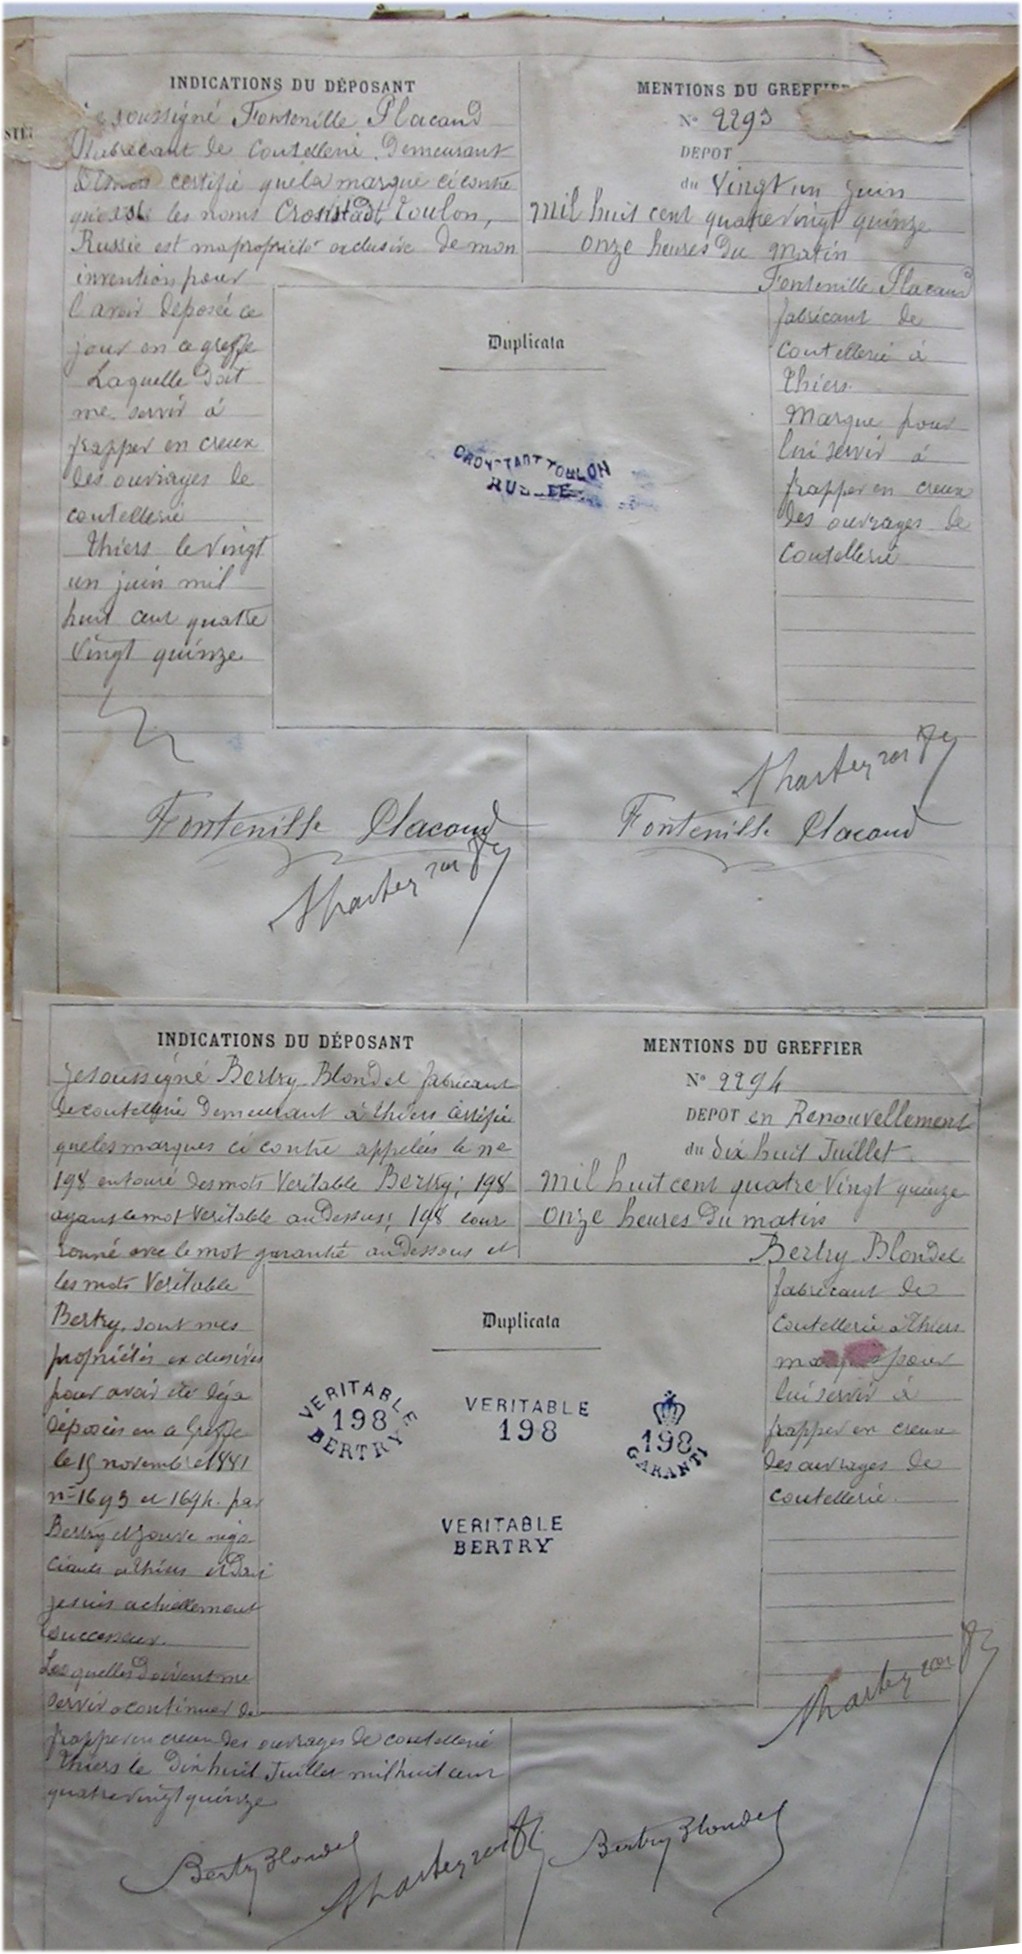 INDICATIONS DU DÉPOSANT
soussigné Fontenille Placaud
fabricant de coutellerie Demeurant
à certifie que la marque ci contre
les noms Cronstadt, Toulon,
Russie est ma propriété exclusive de mon
invention pour
l'avoir déposée ce
jour en ce greffe
Laquelle doit
me servir à
frapper en creux
des ouvrages de
coutellerie
Thiers le vingt
un juin mil
huit cent quatre
vingt quinze
MENTIONS DU GREFFIER
N° 2293
DEPOT
du Vingt un juin
mil huit cent quatre vingt quinze
onze heures du matin
Fontenille Placaud
fabricant de
Coutellerie à
Thiers.
Marque pour
lui servir à
frapper en creux
des ouvrages de
Coutellerie
Duplicata
CRONSTADT TOULON
RUSSIE
Fontenille Placaud
Fontenille Placaud
INDICATIONS DU DÉPOSANT
Je soussigné Bertry Blondel fabricant
de coutellerie Demeurant à Thiers Certifie
que les marques ci contre appelées le no
198 entouré des mots Veritable Bertry; 198
ayant le mot Veritable au Dessus; 198 cour
ronné avec le mot garantie au dessous et
les mots Veritable
Bertry, sont mes
propriétés exclusives
pour avoir été déja
déposées en ce Greffe
le 15 novembre 1881
n° 1693 et 1694 par
Bertry et Jouve négo
ciants à Thiers et Dont
je suis actuellement
successeur.
Lesquelles doivent me
servir à continuer de
frapper en creux des ouvrages de coutellerie
Thiers le Dix huit Juillet mil huit cent
quatre vingt quinze
MENTIONS DU GREFFIER
N° 2294
DEPOT en Renouvellement
du dix huit Juillet
mil huit cent quatre Vingt quinze
onze heures du matin
Bertry Blondel
fabricant de
Coutellerie à Thiers
pour
lui servir à
frapper en creux
des ouvrages de
coutellerie.
Duplicata
VERITABLE
198
BERTRY
VERITABLE
198
198
GARANTI
VERITABLE
BERTRY
Bertry Blondel
Bertry Blondel